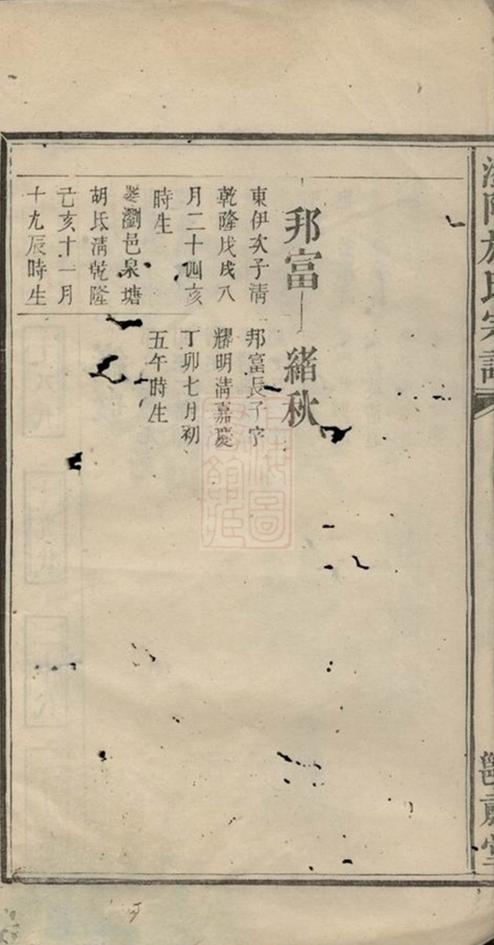 邦富
緒秋
東伊次子清
乾隆戊戌八
月二十四亥
時生
娶瀏邑泉塘
胡氏清乾隆
己亥十一月
十九辰時生
邦富長子字
耀明清嘉慶
丁卯七月初
五午時生
氏宗譜